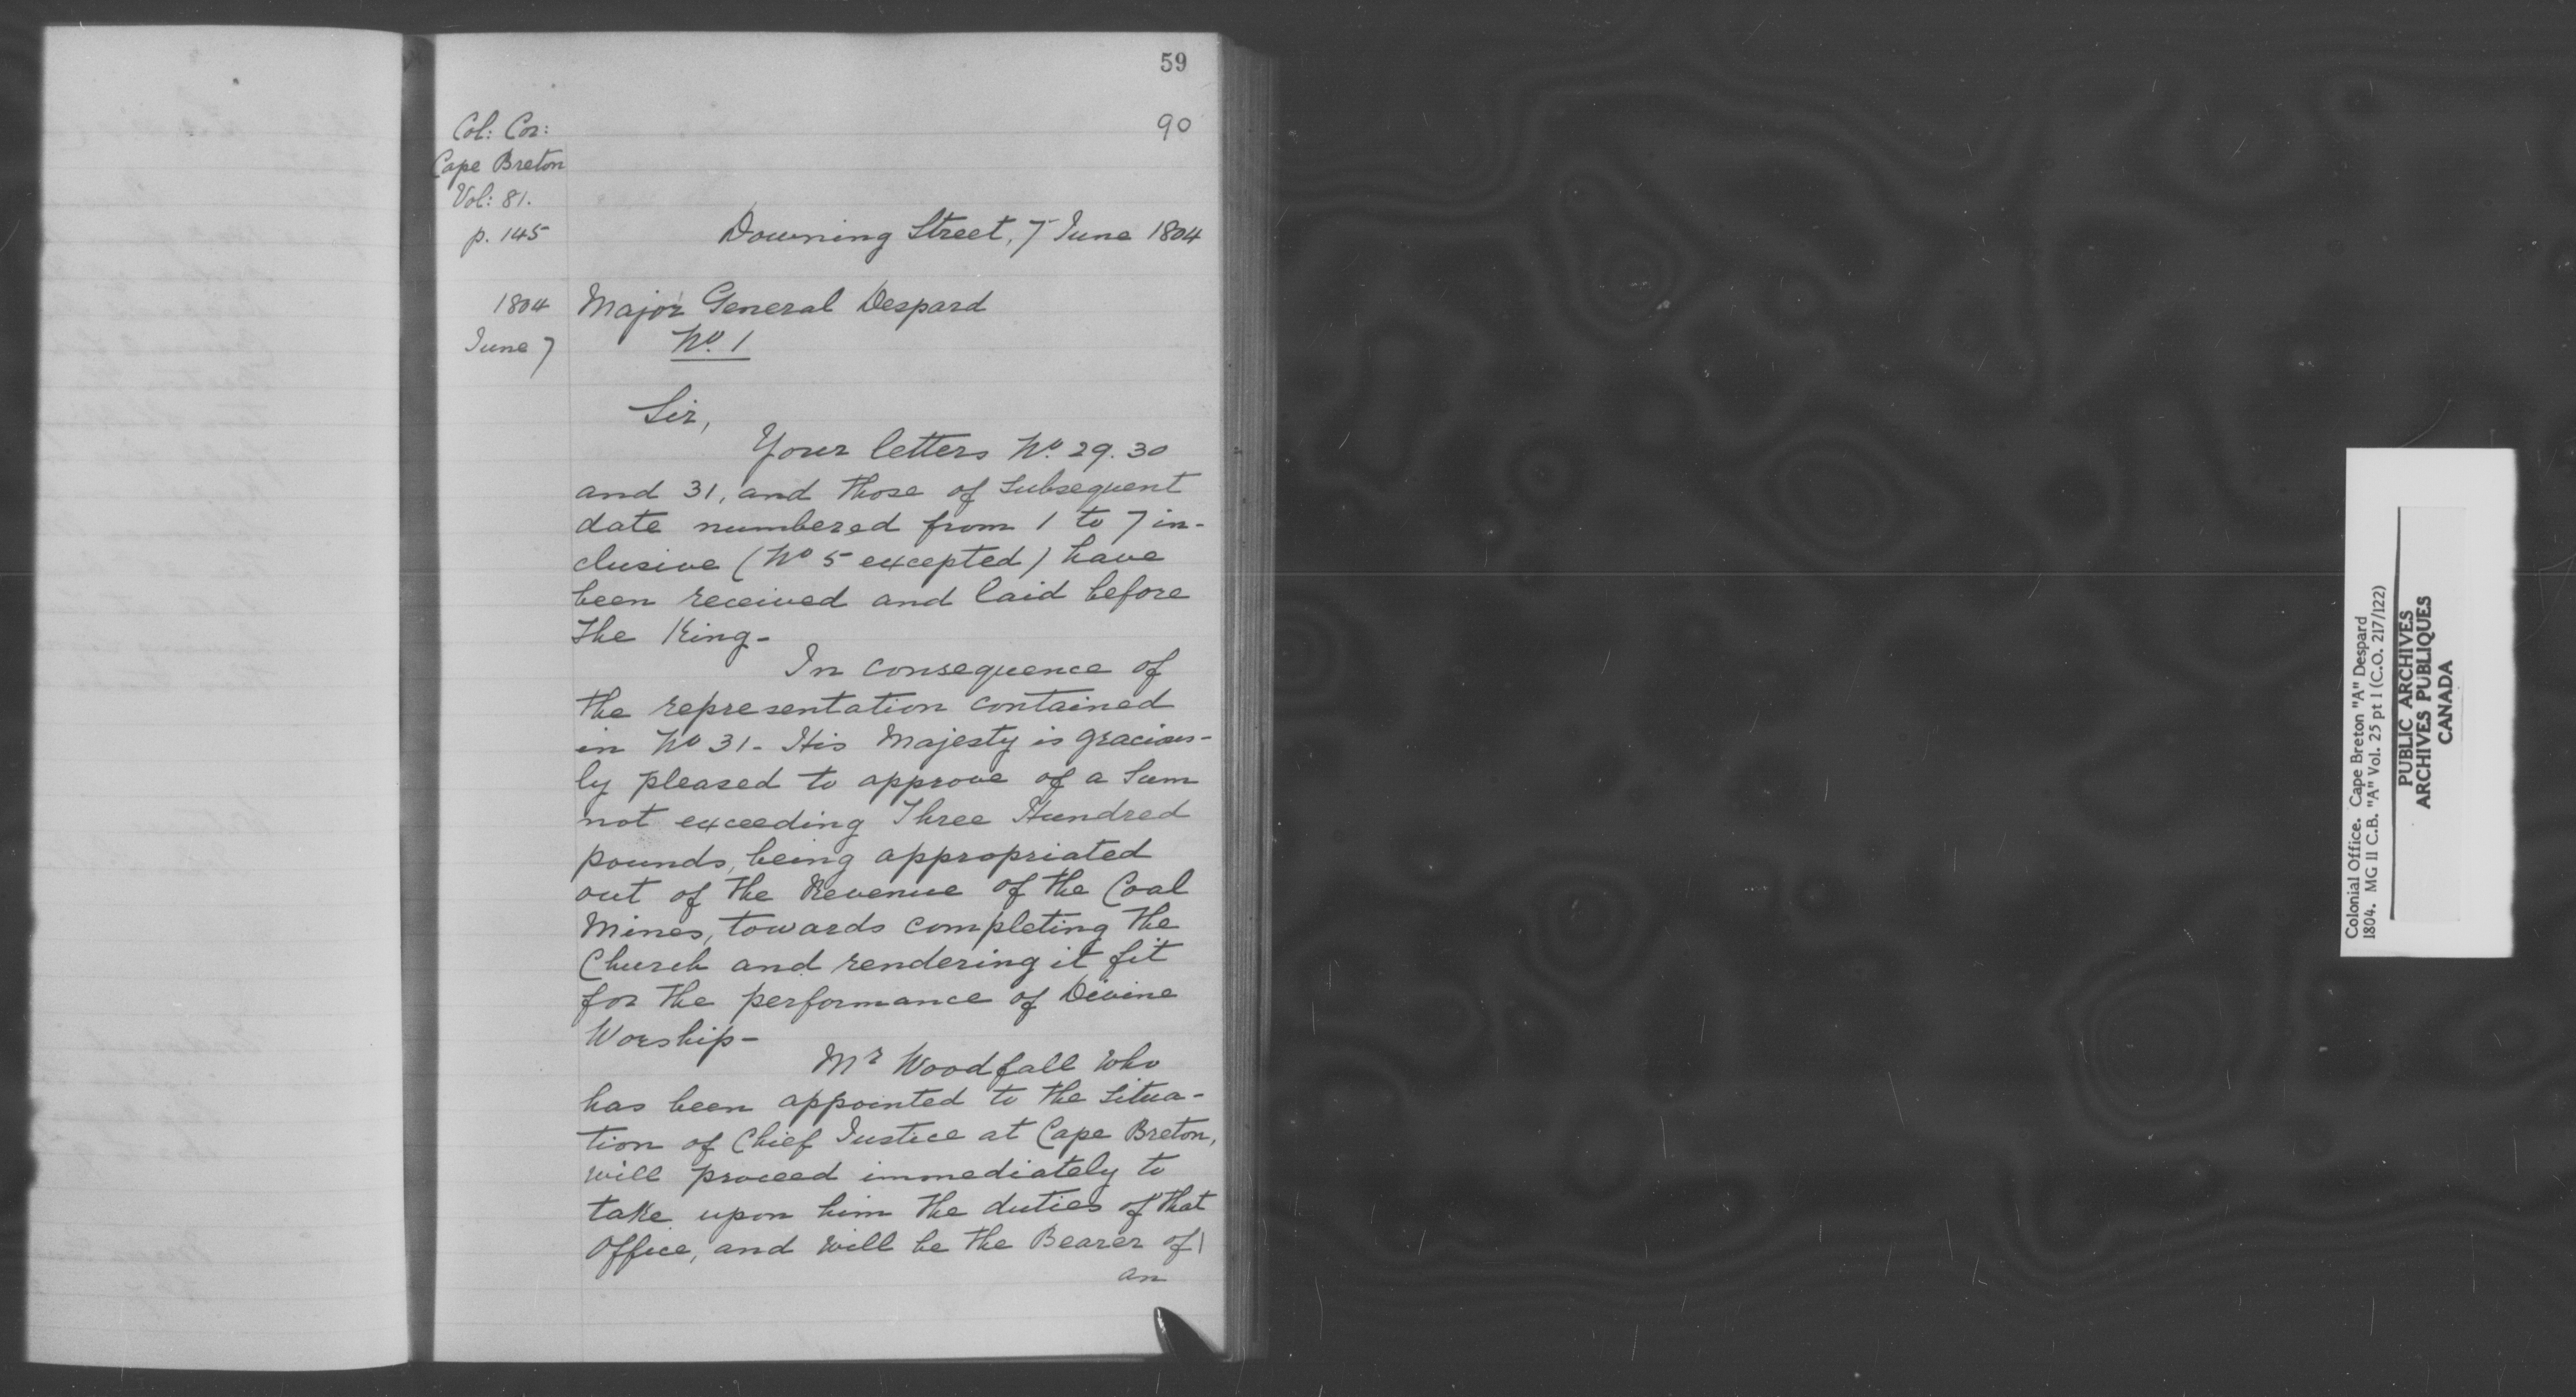 59
90
Col: Cor:
Cape Breton
Vol: 81.
p. 145
Downing Street, 7 June 1804
1804
June 7
Major General Despard
No. 1
Sir,
Your letters No. 29. 30
and 31, and those of subsequent
date numbered from 1 to 7 in-
clusive (No 5 excepted) have
been received and laid before
the King-
In consequence of
the representation contained
in No 31- His Majesty is gracious-
ly pleased to approve of a Sum
not exceeding Three Hundred
pounds, being appropriated
out of the Revenue of the Coal
Mines, towards completing the
Church and rendering it fit
for the performance of Divine
Worship-
Mr Woodfall who
has been appointed to the situa-
tion of Chief Justice at Cape Breton,
will proceed immediately to
take upon him the duties of that
Office, and will be the Bearer of
an
Colonial Office. Cape Breton "A" Despard
1804. MG II C.B. "A" Vol. 25 pt I (C.O. 217/122)
PUBLIC ARCHIVES
ARCHIVES PUBLIQUES
CANADA